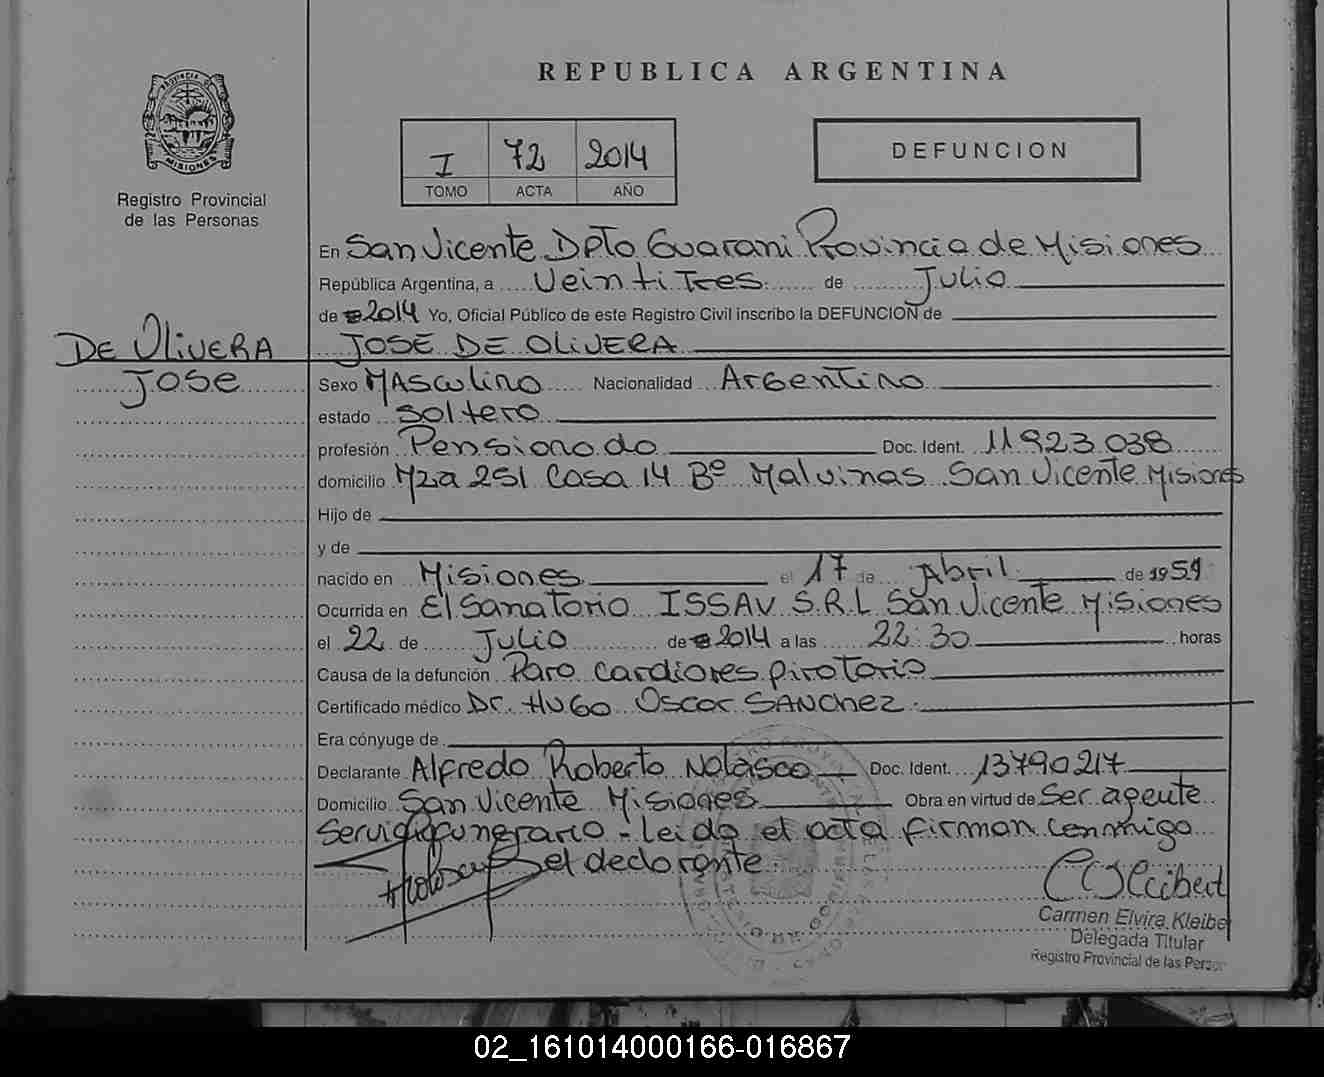 REPUBLICA ARGENTINA
PROVINCIA DE
MISIONES
Registro Provincial
de las Personas
I 72 2014
TOMO ACTA AÑO
DEFUNCION
En San Vicente Dpto Guarani Provincia de Misiones
República Argentina, a Veinti Tres de Julio
de 2014 Yo, Oficial Público de este Registro Civil inscribo la DEFUNCION de
DE OLIVERA
JOSE DE OLIVERA
Jose
Sexo Masculino Nacionalidad Argentino
estado Soltero
profesión Pensionado Doc. Ident. 11923.038
domicilio Mza 251 Casa 14 Bº Malvinas San Vicente Misiones
Hijo de
y de
nacido en Misiones el 17 de Abril de 1951
Ocurrida en El Sanatorio ISSAV S.R.L San Vicente Misiones
el 22 de Julio de 2014 a las 22:30 horas
Causa de la defunción Paro cardiorespiratorio
Certificado médico Dr. Hugo Oscar Sanchez.
Era cónyuge de
Declarante Alfredo Roberto Nolasco Doc. Ident. 13790217
Domicilio San Vicente Misiones Obra en virtud de Ser agente
Servicio funerario - leido el acta firman conmigo
el declarante
Carmen Elvira Kleibe
Delegada Titular
Registro Provincial de las Person
02_161014000166-016867